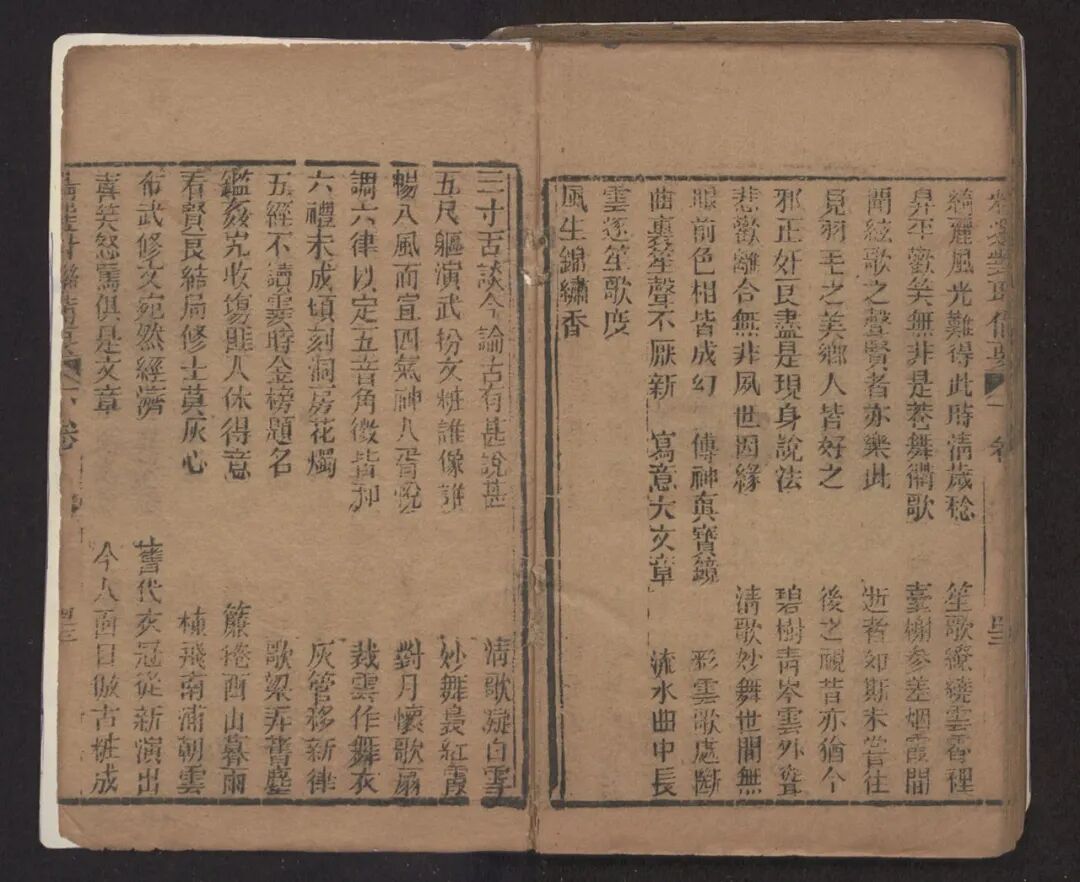 綺麗風光難得此時清歲稔　笙歌繚繞雲霄裡
昇平歡笑無非是處舞衢歌　臺榭參差烟霞間
聞絃歌之聲賢者亦樂此　逝者如斯未嘗往
見羽毛之美鄉人皆好之　後之視昔亦猶今
邪正奸良盡是現身說法　碧樹青岑雲外聳
悲歡離合無非夙世因緣　清歌妙舞世間無
眼前色相皆成幻　傳神真寶鏡　彩雲歌處斷
曲裏笙聲不厭新　寫意大文章　流水曲中長
雲逐笙歌度
風生錦繡香
三寸舌談今論古有甚說甚　清歌凝白雪
五尺軀演武扮文粧誰像誰　妙舞裊紅霞
暢八風而宣四氣神人胥悅　對月懷歌扇
調六律以定五音角徵皆和　裁雲作舞衣
六禮未成頃刻洞房花燭　灰管移新律
五經不讀霎時金榜題名　歌梁弄舊塵
鑑姦宄收塲匪人休得意　簾捲西山暮雨
看賢良結局修士莫灰心　棟飛南浦朝雲
布武修文宛然經濟　舊代衣冠從新演出
喜笑怒罵俱是文章　今人面目倣古粧成
卷 四三